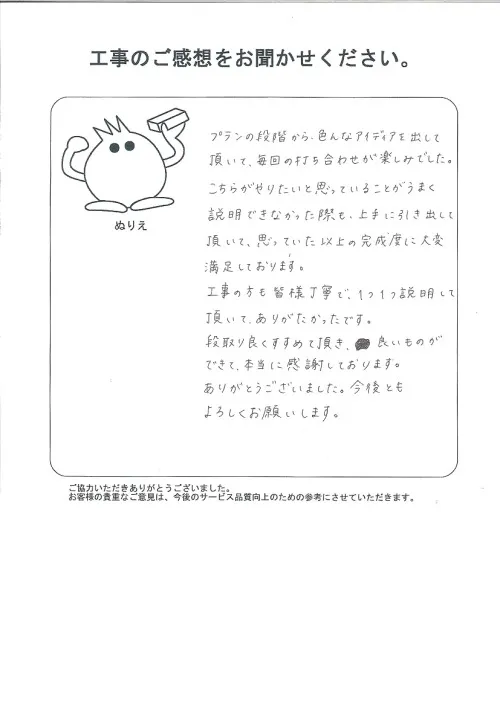 工事のご感想をお聞かせください。
ぬりえ
プランの段階から、色んなアイディアを出して
頂いて、毎回の打ち合わせが楽しみでした。
こちらがやりたいと思っていることがうまく
説明できなかった際も、上手に引き出して
頂いて、思っていた以上の完成度に大変
満足しております。
工事の方も皆様丁寧で、1つ1つ説明して
頂いて、ありがたかったです。
段取り良くすすめて頂き、良いものが
できて、本当に感謝しております。
ありがとうございました。今後とも
よろしくお願いします。
ご協力いただきありがとうございました。
お客様の貴重なご意見は、今後のサービス品質向上のための参考にさせていただきます。